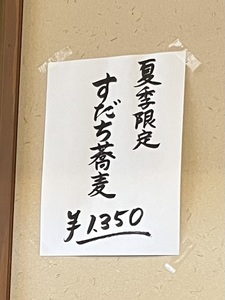 夏季限定
すだち蕎麦
¥1.350